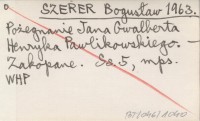 SZERER Bogusław 1963.
Pożegnanie Jana Gwalberta
Henryka Pawlikowskiego. –
Zakopane. Ss. 5, mps.
WHP